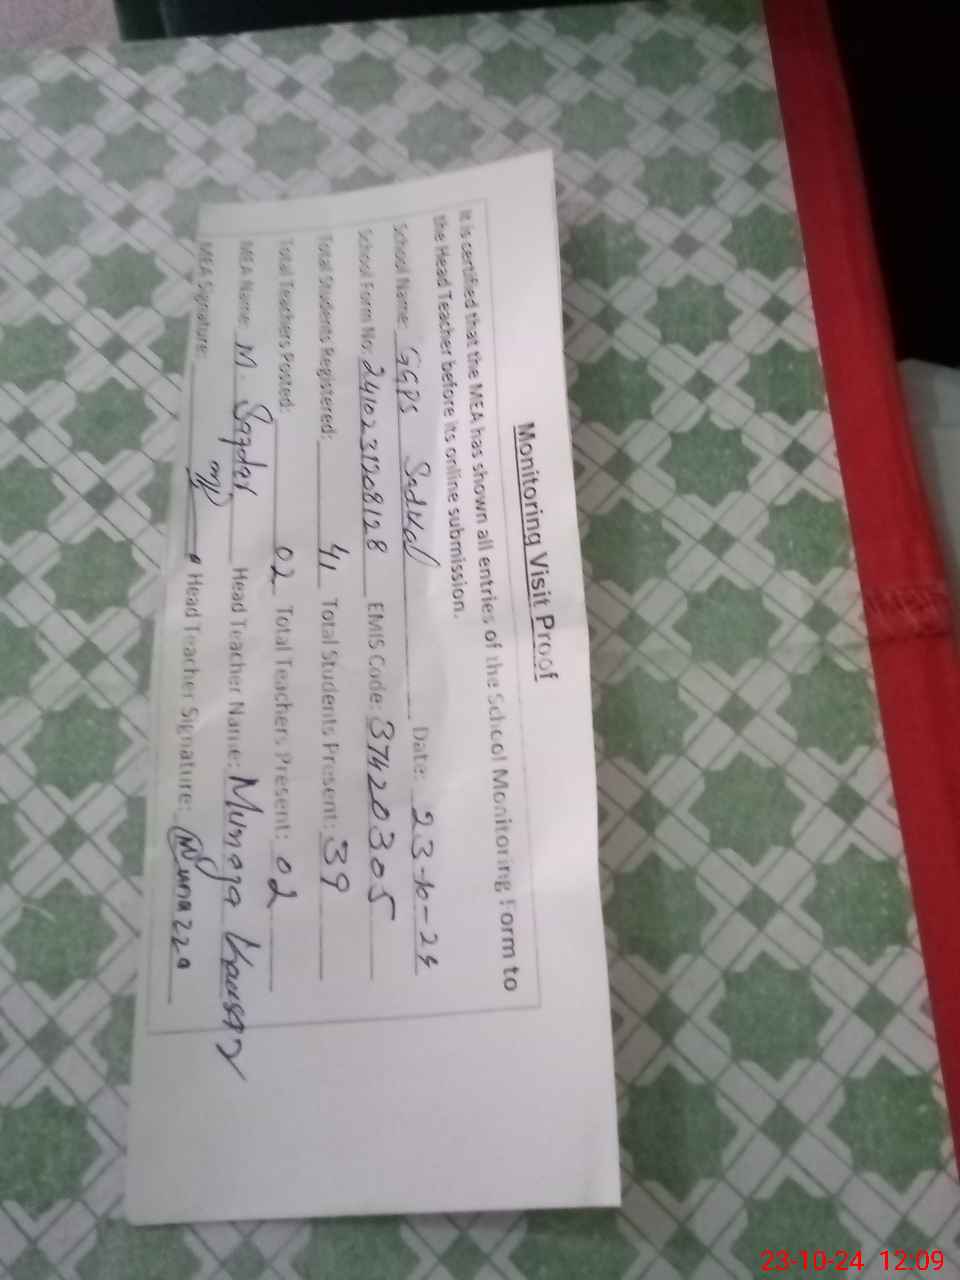 Monitoring Visit Proof
It is certified that the MEA has shown all entries of the School Monitoring Form to
the Head Teacher before its online submission.
School Name: GGPS Date: 23-10-24
School Form No: EMIS Code: 37420305
Total Students Registered: 41 Total Students Present: 39
Total Teachers Posted: 02 Total Teachers Present: 02
MEA Name: M. Head Teacher Name: Munazza Kausar
MEA Signature: Head Teacher Signature: Munazza
23-10-24 12:09